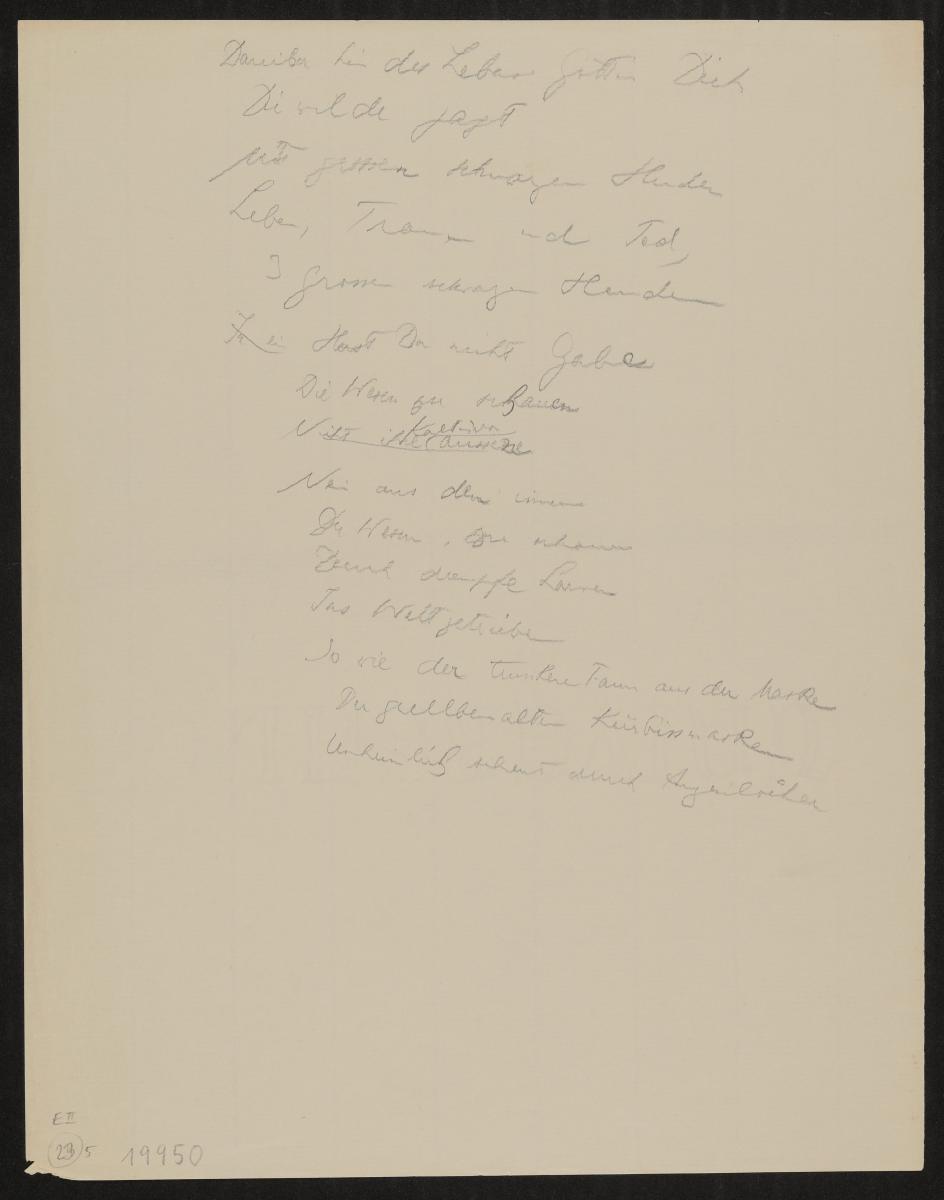 Darüber hin des Lebens Göttin Dich
Die wilde jagt
Mit grossen schwarzen Hunden
Leben, Traum und Tod,
3 grossen schwarzen Hunden
Hast Du nicht Gabe
Die Wesen zu schauen
Nicht aussen
Nein aus dem innern
Die Wesen, zu schauen
Durch dumpfe Larven
Ins Weltgetriebe
So wie der trunkene Faun aus der Maske
Der gelben alten Kürbissmasken
Unheimlich schaut durch Augenlöcher
E II
23 5 19950